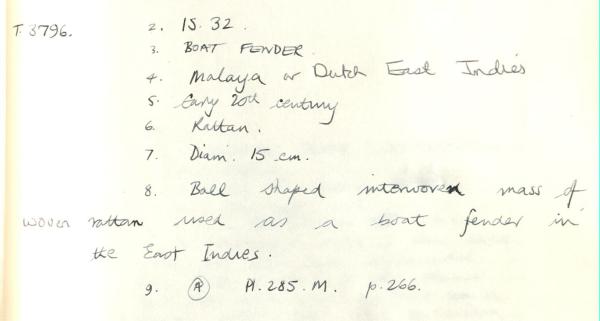 T. 3796. 2. IS. 32.
3. BOAT FENDER.
4. Malaya or Dutch East Indies
5. Early 20th century
6. Rattan.
7. Diam. 15 cm.
8. Ball shaped interwoven mass of
woven rattan used as a boat fender in
the East Indies.
9. Pl. 285. M. p. 266.